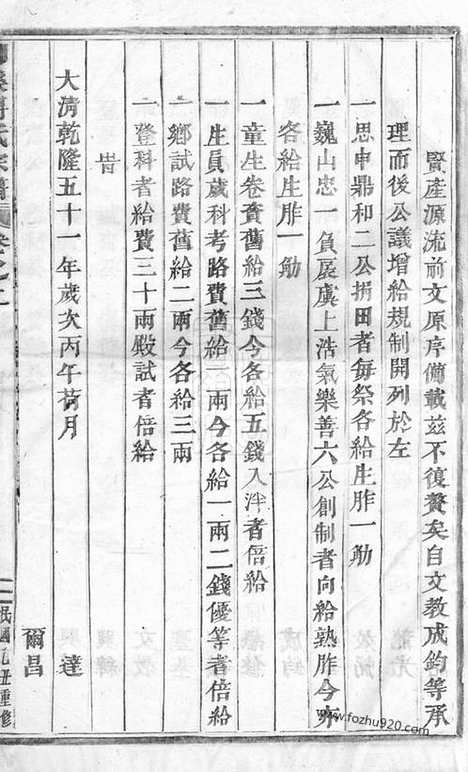 賢產源流前文原序備載茲不復贅矣自文教成鈞等承
理而後公議增給規制開列於左
一思申鼎和二公捐田者每祭各給生胙一觔
一巍山忠一負扆虞上浩氣樂善六公創制者向給熟胙今亦
各給生胙一觔
一童生卷資舊給三錢今各給五錢入泮者倍給
一生員歲科考路費舊給一兩今各給一兩二錢優等者倍給
一鄉試路費舊給二兩今各給三兩
一登科者給費三十兩殿試者倍給
旹
大清乾隆五十一年歲次丙午荷月
達
爾昌
民國乙丑重修
www.fozhu920.com